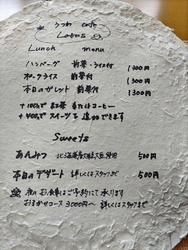 うつわ cafe
Lotus
Lunch menu
ハンバーグ 前菜・ライス付 1000円
ポークライス 前菜付 1300円
本日のガレット 前菜付 1300円
+100円で お茶 またはコーヒー
+400円で スイーツを 追加できます
Sweets
あんみつ 北海道産大納言豆使用 500円
本日のデザート 詳しくはスタッフまで 500円
夜のお食事はご予約にて承ります
おまかせコース 3000円〜 詳しくはスタッフまで